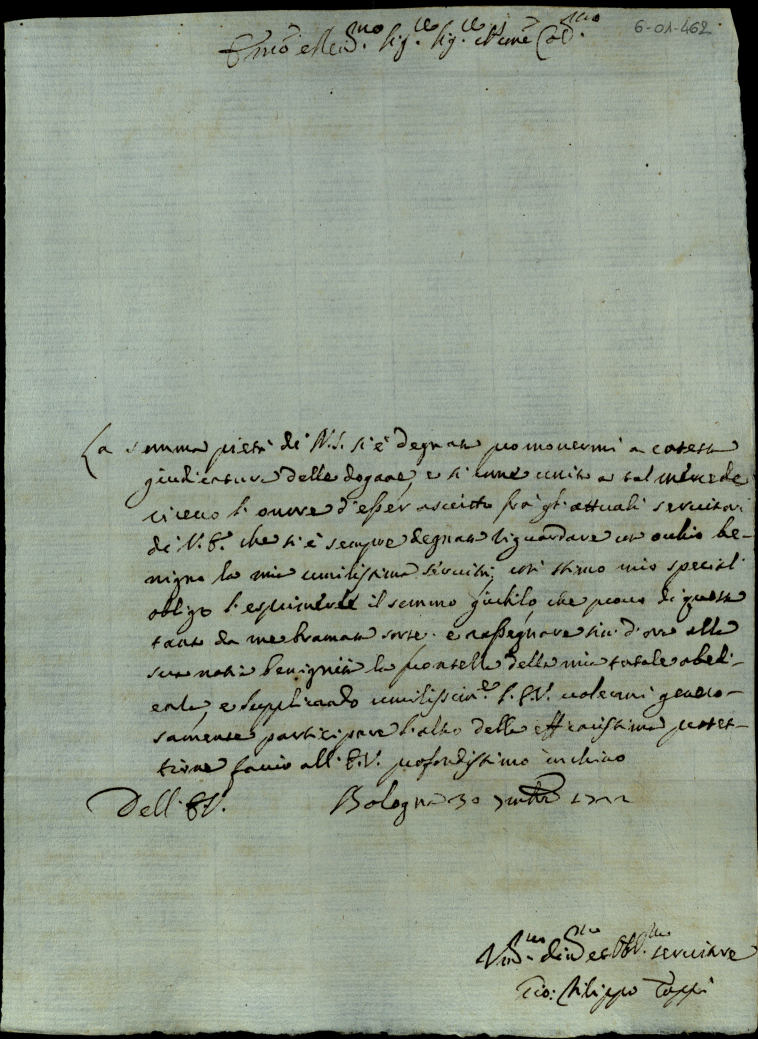 6-01-462
Emo e Rmo Sig.re Sig.re Pne Col.mo
La somma pietà di N.S. si è degnata promovermi a cotesta
giudicatura delle dogane, e si come unito a tal mercede
ricevo l'onore d'esser ascritto frà gl'attuali servitori
di V.E. che si è sempre degnata riguardare con ochio be-
nigno la mia umilissima servitù, così stimo mio speciale
obligo l'esprimerle il sommo giubilo, che provo di questa
tanto da me bramata sorte e rassegnare sin d'ora alla
sua nota benignità la della mia totale obedi-
enza, e supplicando umilissim.e l'E.V. volermi genero-
samente participare l'alto della efficacissima protet-
tione faccio all'E.V. profondissimo inchino
Dell'E.V. Bologna 30 7mbre
Vm.o Dev.mo et Obl.mo servitore
Gio: Filippo Toppi